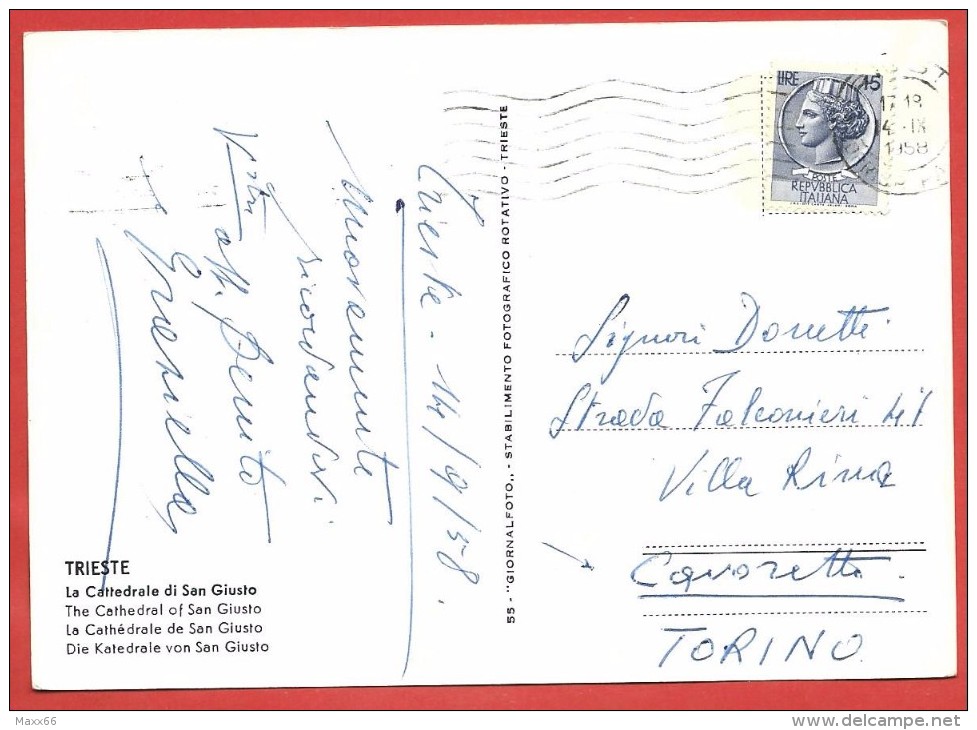 Trieste - 14/9/58.
Nuovamente
ricordandovi.
Vostri
aff. Benito
Graziella
TRIESTE
La Cattedrale di San Giusto
The Cathedral of San Giusto
La Cathédrale de San Giusto
Die Katedrale von San Giusto
55 - "GIORNALFOTO„ - STABILIMENTO FOTOGRAFICO ROTATIVO - TRIESTE
LIRE 15
POSTE
REPVBBLICA
ITALIANA
17-18
1958
Signori Donetti
Strada Falconieri 41
Villa Rina
Cavoretto.
TORINO
Maxx66
www.delcampe.net